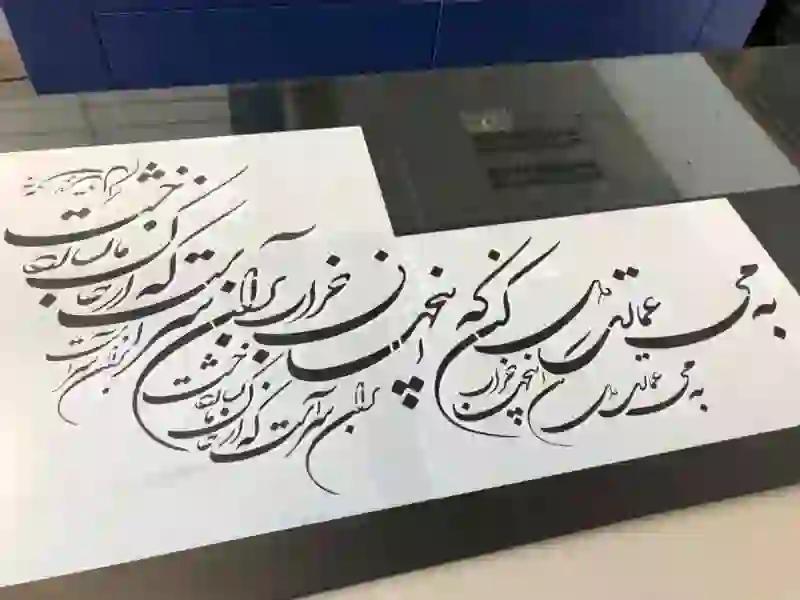 به می عمارت دل کن که این جهان خراب
بر آن سر است که از خاک ما بسازد خشت
به می عمارت دل کن که این جهان خراب
بر آن سر است که از خاک ما بسازد خشت